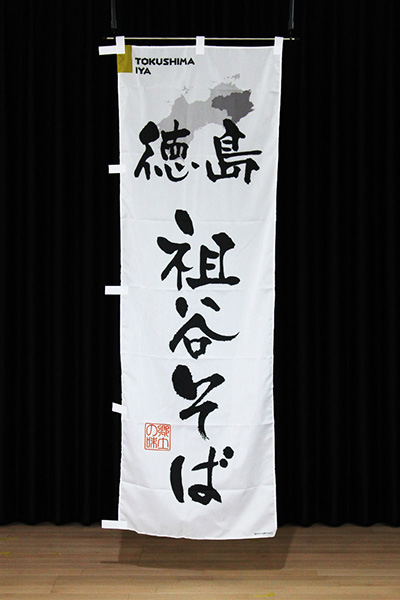 TOKUSHIMA
IYA
徳島
祖谷そば
郷土
の味